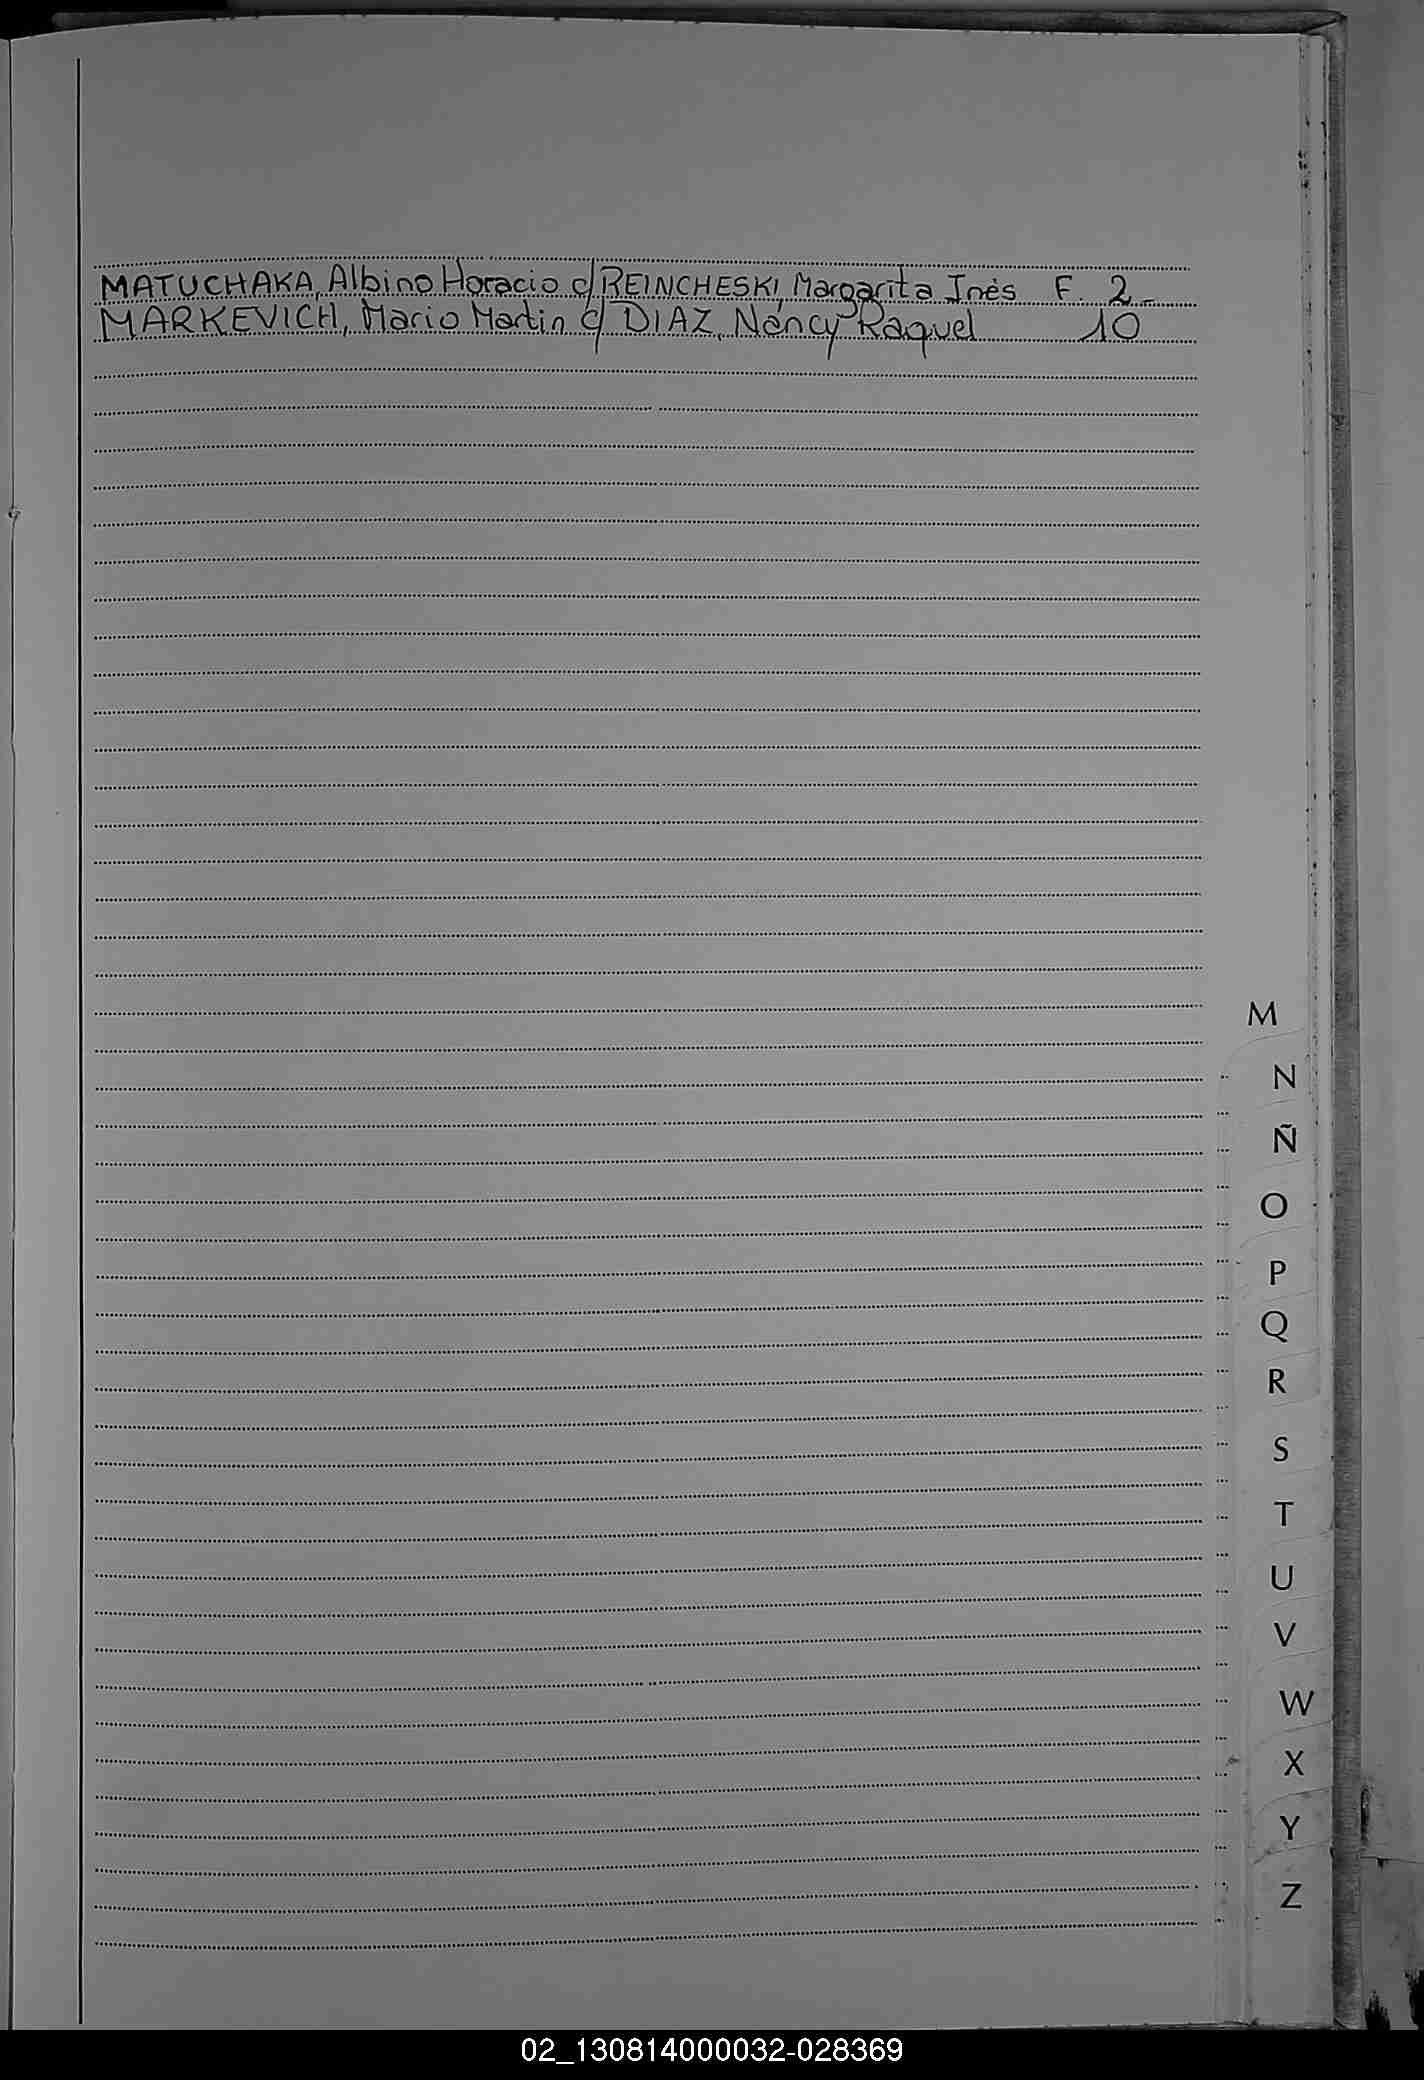 MATUCHAKA, Albino Horacio c/ REINCHESKI, Margarita Inés F. 2-
MARKEVICH, Mario Martin c/ DIAZ, Nancy Raquel 10
M
N
Ñ
O
P
Q
R
S
T
U
V
W
X
Y
Z
02_130814000032-028369